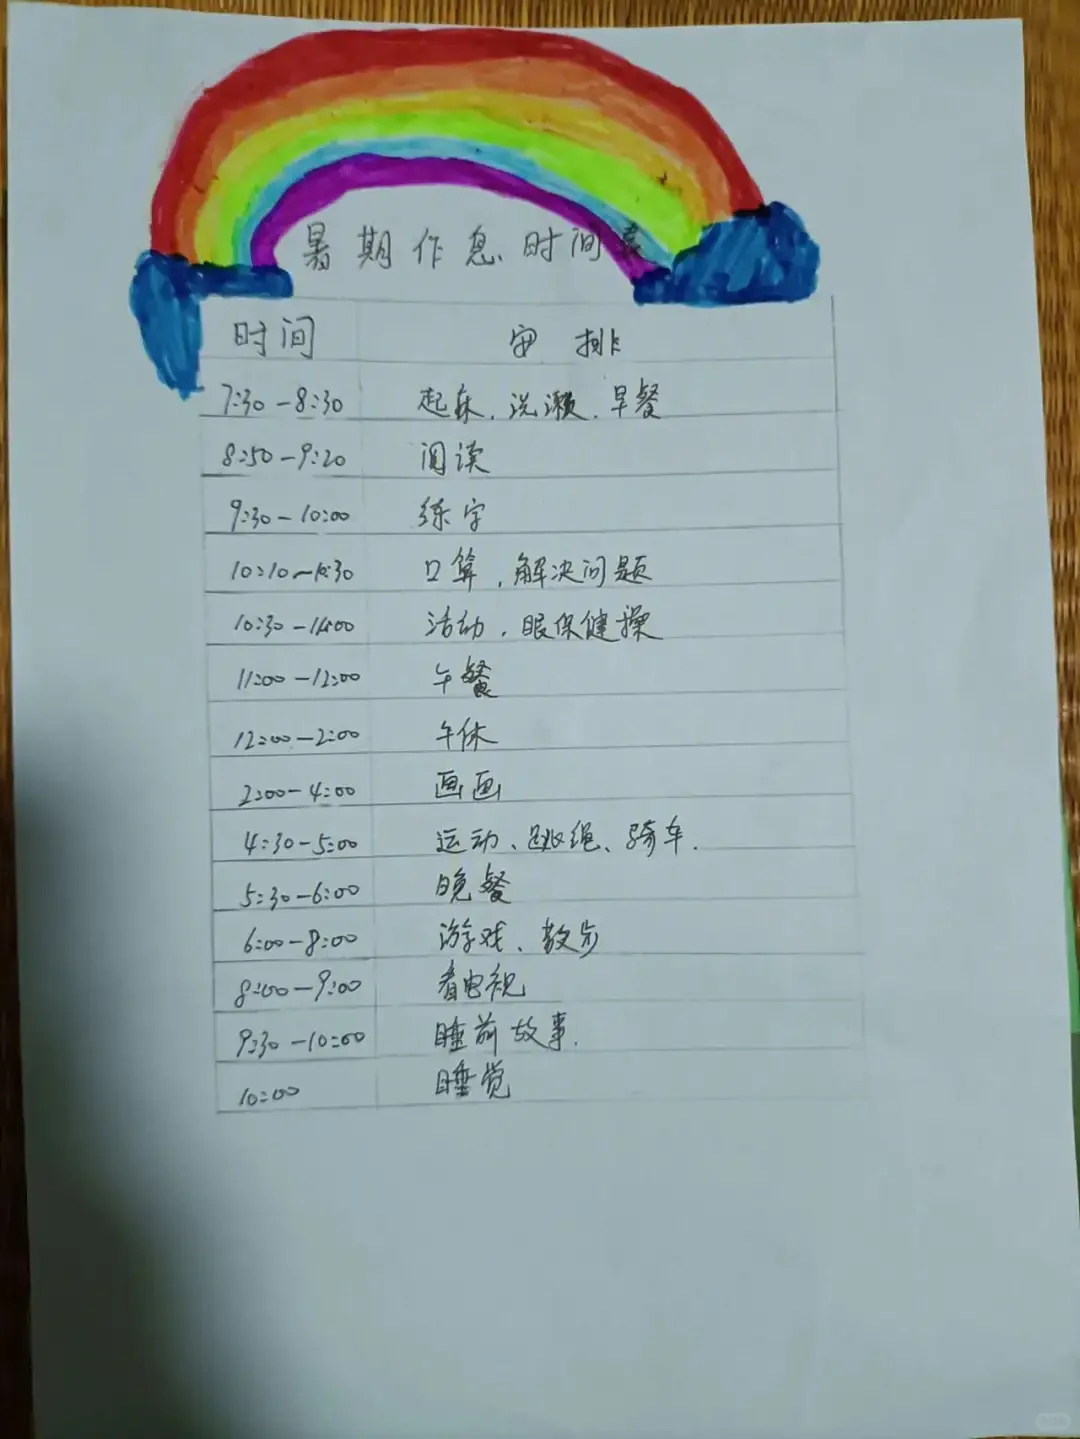 暑期作息时间表
时间 安排
7:30-8:30 起床、洗漱、早餐
8:50-9:20 阅读
9:30-10:00 练字
10:10-10:30 口算、解决问题
10:30-11:00 活动、眼保健操
11:00-12:00 午餐
12:00-2:00 午休
2:00-4:00 画画
4:30-5:00 运动、跳绳、骑车.
5:30-6:00 晚餐
6:00-8:00 游戏、散步
8:00-9:00 看电视
9:30-10:00 睡前故事.
10:00 睡觉